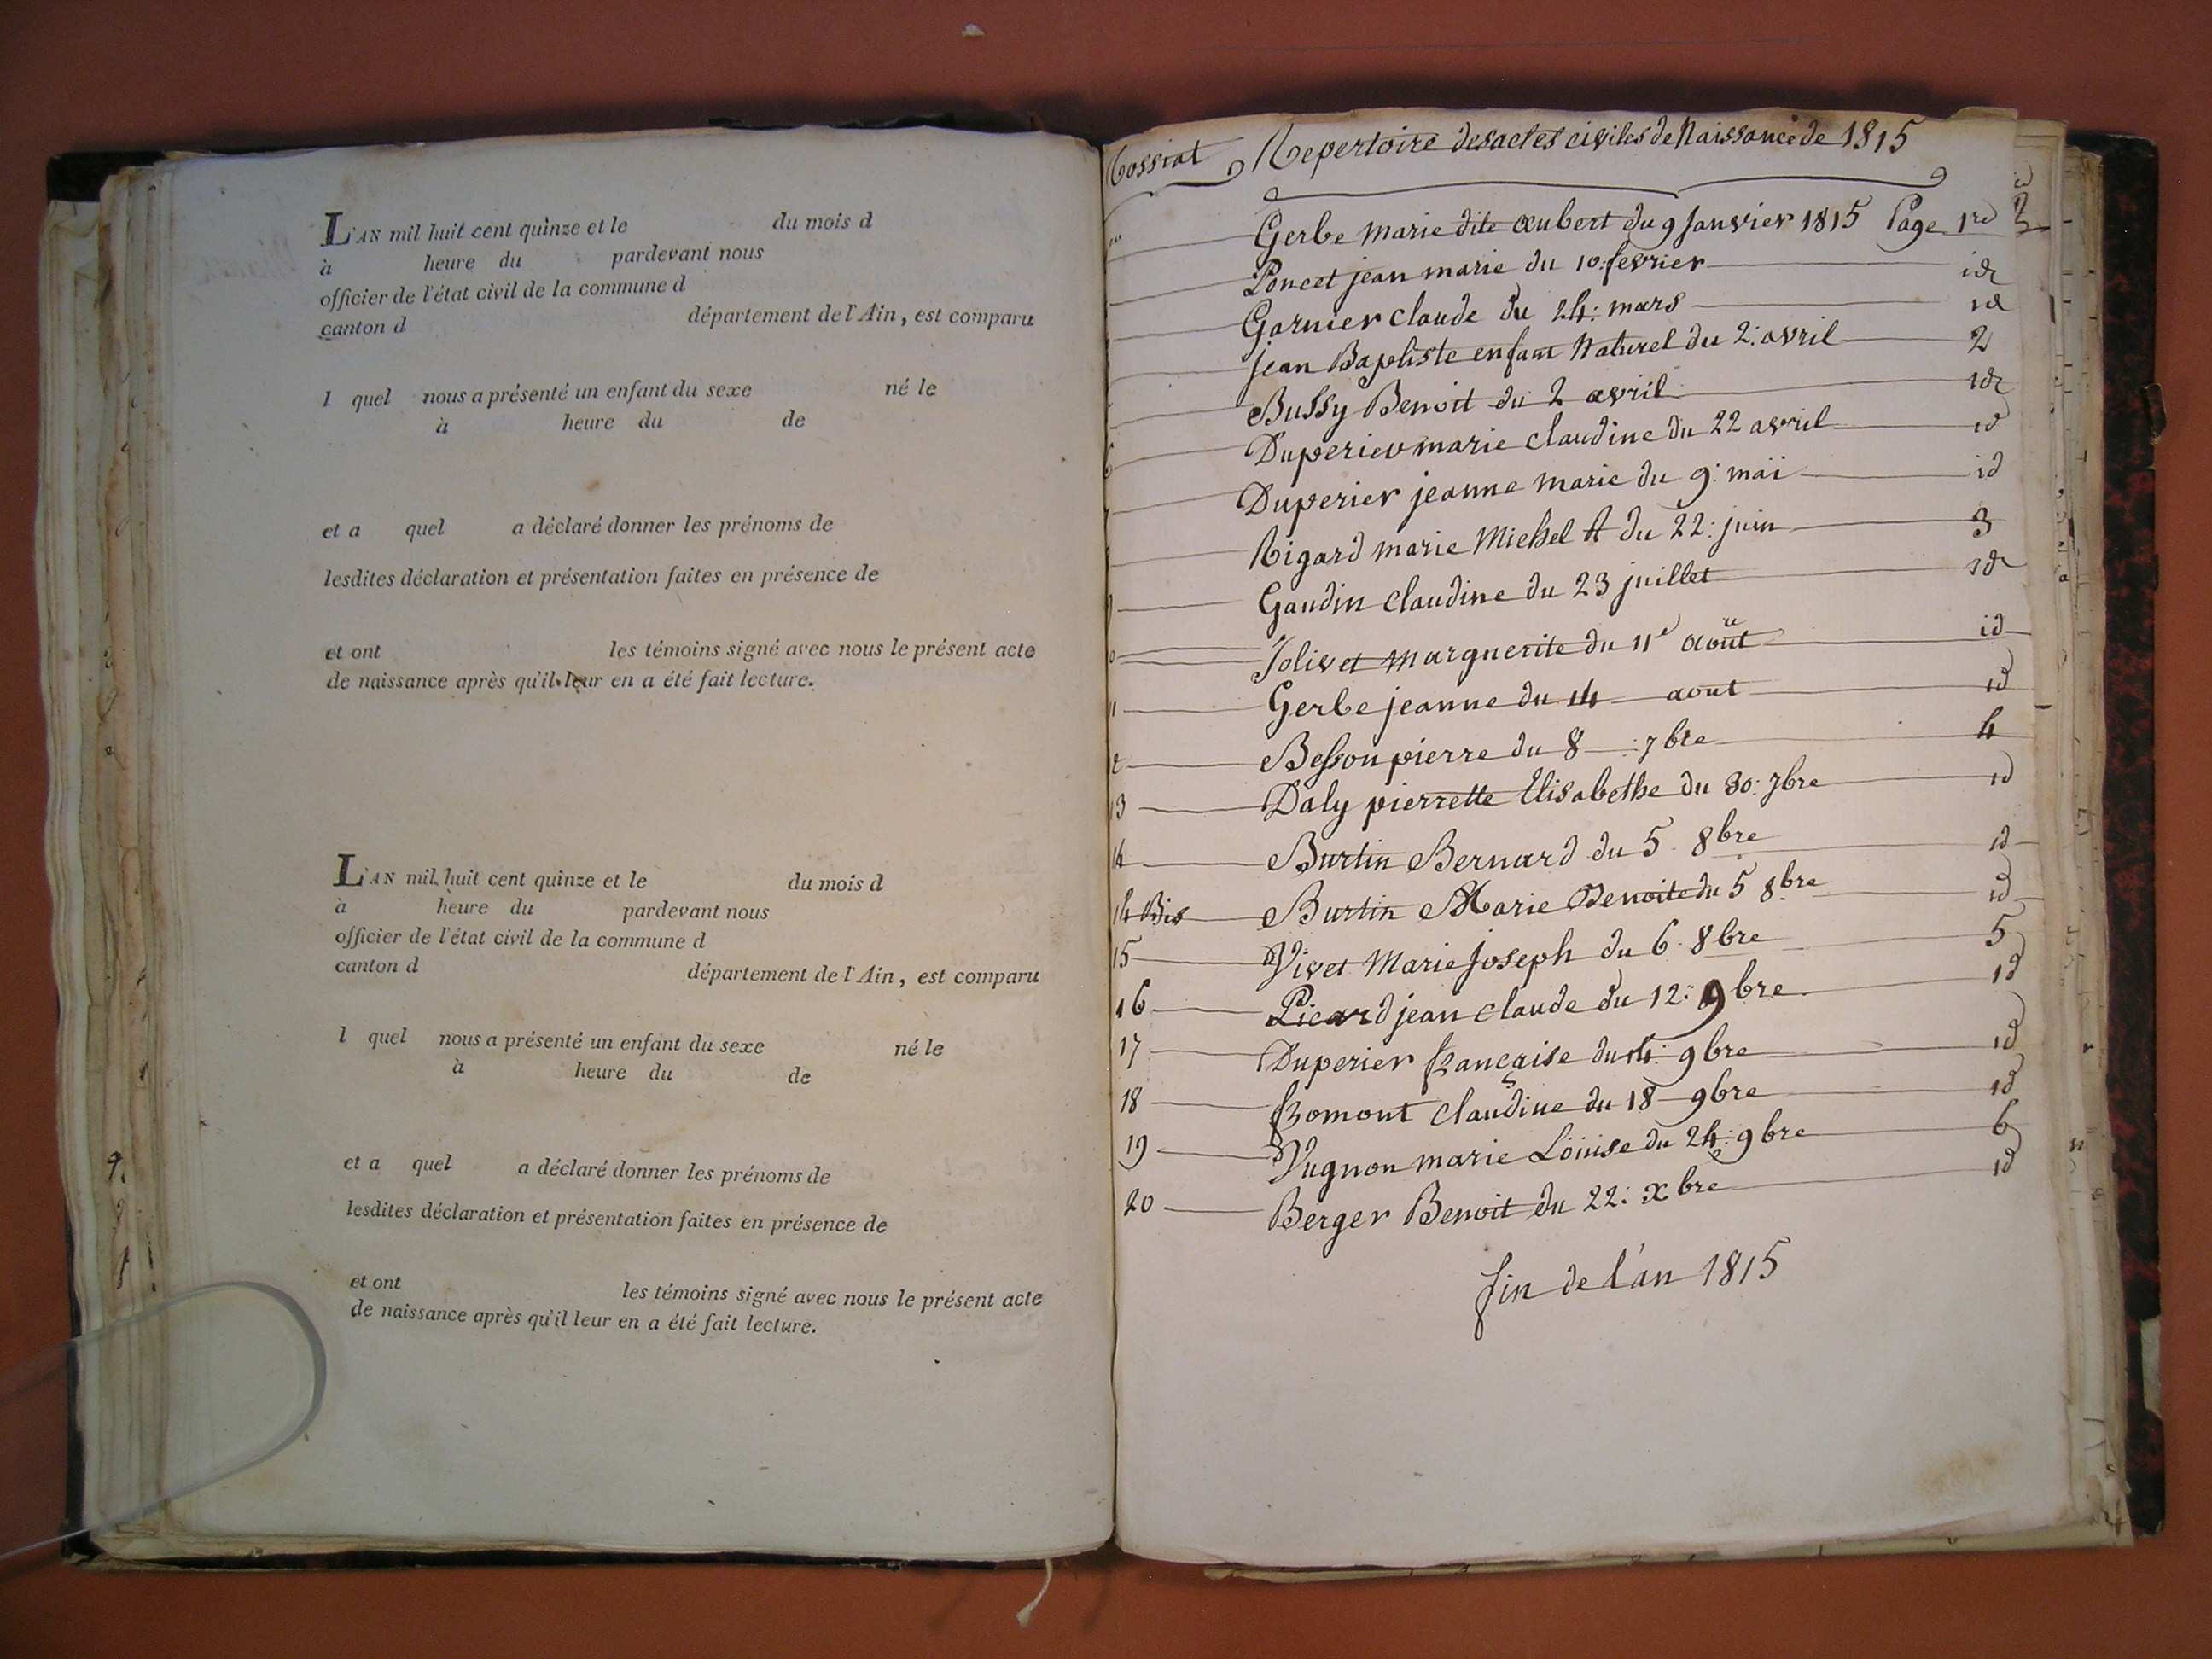 L'AN mil huit cent quinze et le du mois d
à heure du pardevant nous
officier de l'état civil de la commune d
canton d département de l'Ain, est comparu
l quel nous a présenté un enfant du sexe né le
à heure du de
et a quel a déclaré donner les prénoms de
lesdites déclaration et présentation faites en présence de
et ont les témoins signé avec nous le présent acte
de naissance après qu'il leur en a été fait lecture.
L'AN mil huit cent quinze et le du mois d
à heure du pardevant nous
officier de l'état civil de la commune d
canton d département de l'Ain, est comparu
l quel nous a présenté un enfant du sexe né le
à heure du de
et a quel a déclaré donner les prénoms de
lesdites déclaration et présentation faites en présence de
et ont les témoins signé avec nous le présent acte
de naissance après qu'il leur en a été fait lecture.
Cossiat Repertoire des actes civiles de Naissance de 1815
Gerbe Marie dite aubert du 9 Janvier 1815 Page 1re
Poncet jean marie du 10: fevrier id
Garnier claude du 24: mars id
jean Baptiste enfant Naturel du 2: avril 2
Bussy Benoit du 2 avril id
6 Duperier marie claudine du 22 avril id
7 Duperier jeanne marie du 9: mai id
Rigard marie Michel A du 22: juin 3
9 Gaudin Claudine du 23 juillet id
0 Jolivet Marguerite du 11e août id
11 Gerbe jeanne du 14 aout id
2 Besson pierre du 8 7bre 4
13 Daly pierrette Elisabethe du 30: 7bre id
14 Burtin Bernard du 5 8bre id
14 Bis Burtin Marie Benoite du 5 8bre id
15 Vivet Marie Joseph du 6 8bre 5
16 Picard jean claude du 12: 9bre id
17 Duperier française du 14: 9bre id
18 fromont Claudine du 18 9bre id
19 Vugnon marie Loüise du 24: 9bre 6
20 Berger Benoit du 22: xbre id
fin de l'an 1815